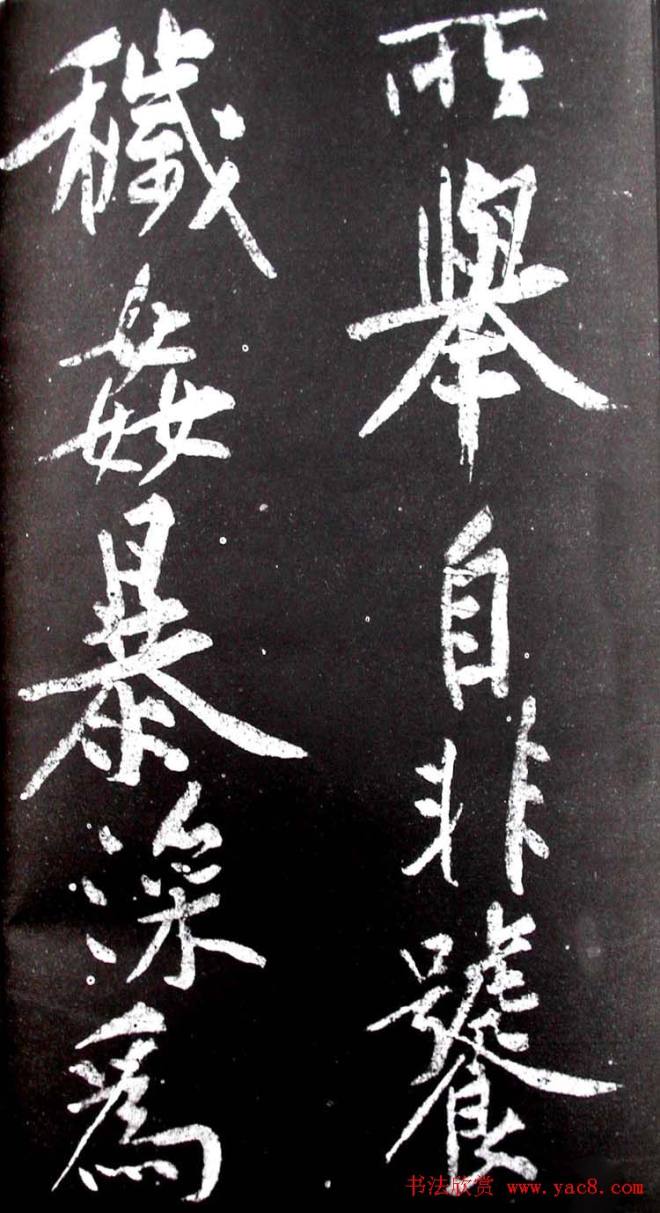 所舉自非饕
穢姦暴深為
书法欣赏 www.yac8.com